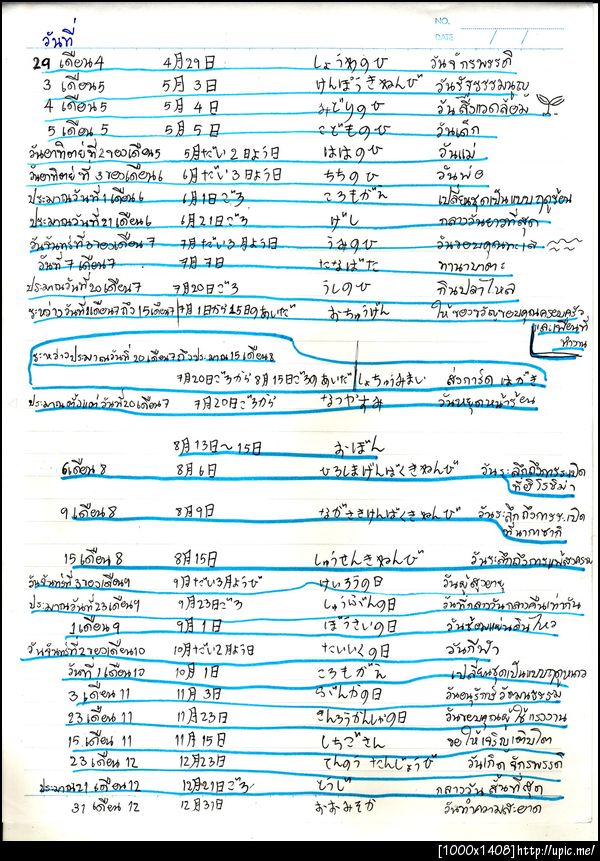 NO.
DATE / /
วันที่
29 เดือน 4 4月29日 しょうわのひ วันจักรพรรดิ
3 เดือน5 5月3日 けんぽうきねんび วันรัฐธรรมนูญ
4 เดือน5 5月4日 みどりのひ วันสิ่งแวดล้อม
5 เดือน 5 5月5日 こどものひ วันเด็ก
วันอาทิตย์ที่ 2ของเดือน5 5月だい2日よう日 ははのひ วันแม่
วันอาทิตย์ ที่ 3ของเดือน6 6月だい3日よう日 ちちのひ วันพ่อ
ประมาณวันที่1เดือน6 6月1日ごろ ころもがえ เปลี่ยนชุดเป็นแบบฤดูร้อน
ประมาณวันที่21เดือน6 6月21日ごろ げし กลางวันยาวที่สุด
วันจันทร์ที่3ของเดือน7 7月だい3月よう日 うみのひ วันขอบคุณทะเล
วันที่7เดือน7 7月7日 たなばた ทานาบาตะ
ประมาณวันที่20เดือน7 7月20日ごろ うしのひ กินปลาไหล
ระหว่างวันที่1เดือน7ถึง15เดือน7 7月1日から15日のあいだ おちゅうげん ให้ของขวัญขอบคุณครอบครัว
และเพื่อนที่
ทำงาน
ระหว่างประมาณวันที่ 20เดือน7ถึงประมาณ15เดือน8
7月20日ごろから8月15日ごろのあいだ しょちゅうみまい ส่งการ์ด はがき
ประมาณตั้งแต่วันที่20เดือน7 7月20日ごろから なつやすみ วันหยุดหน้าร้อน
8月13日～15日 おぼん
6เดือน8 8月6日 ひろしまげんばくきねんび วันระลึกถึงการระเบิด
ที่ฮิโรชิม่า
9 เดือน8 8月9日 ながさきげんばくきねんび วันระลึกถึงการระเบิด
ที่นางาซากิ
15เดือน8 8月15日 しゅうせんきねんび วันระลึกถึงการแพ้สงคราม
วันจันทร์ที่3ของเดือน9 9月だい3月よう日 けいろうの日 วันผู้สูงอายุ
ประมาณวันที่23เดือน9 9月23日ごろ しゅうぶんの日 วันที่กลางวันกลางคืนเท่ากัน
1เดือน9 9月1日 ぼうさいの日 วันซ้อมแผ่นดินไหว
วันจันทร์ที่2ของเดือน10 10月だい2月よう日 たいいくの日 วันกีฬา
วันที่1เดือน10 10月1日 ころもがえ เปลี่ยนชุดเป็นแบบฤดูหนาว
3เดือน11 11月3日 ぶんかの日 วันอนุรักษ์วัฒนธรรม
23เดือน11 11月23日 きんろうかんしゃの日 วันขอบคุณผู้ใช้แรงงาน
15เดือน 11 11月15日 しちごさん ขอให้เจริญเติบโต
23เดือน 12 12月23日 てんのうたんじょうび วันเกิดจักรพรรดิ
ประมาณ21เดือน12 12月21日ごろ とうじ กลางวันสั้นที่สุด
31 เดือน 12 12月31日 おおみそか วันทำความสะอาด
[1000x1408]http://upic.me/